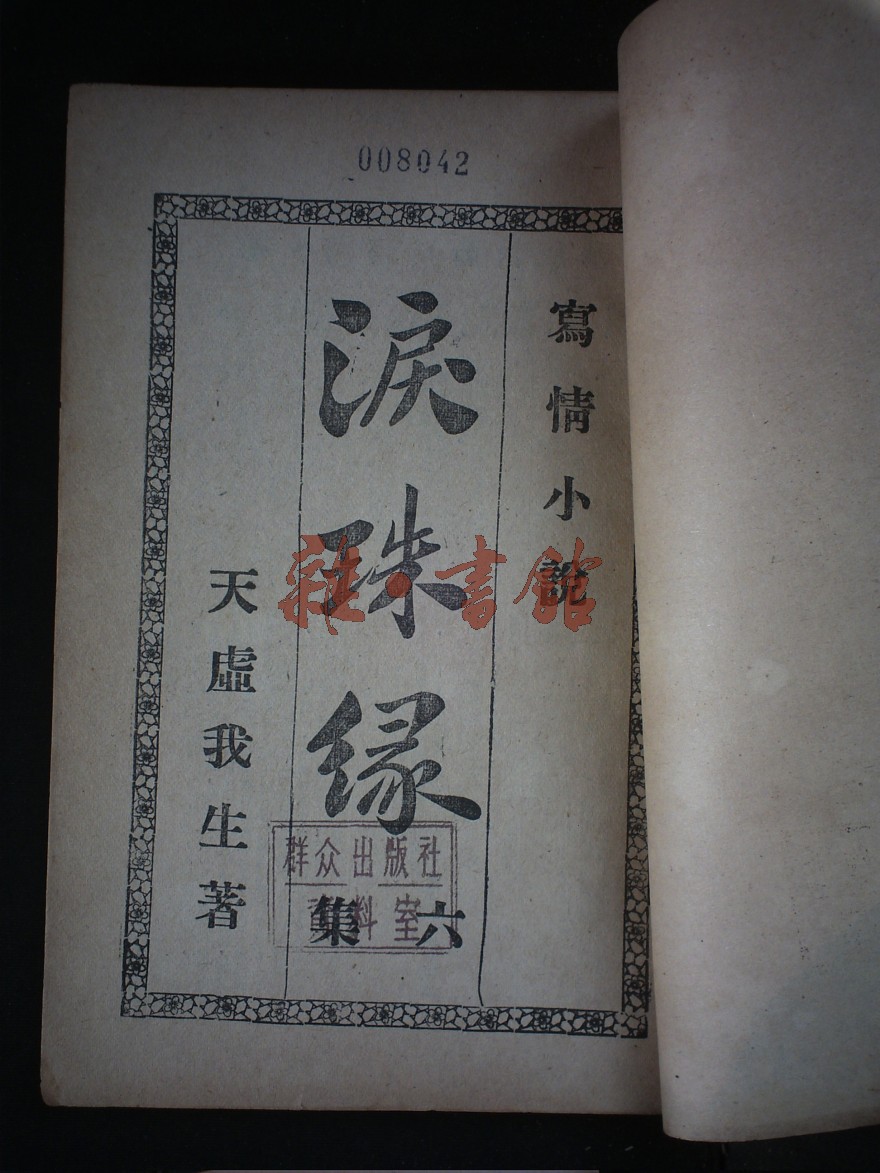 008042
寫情小說
淚珠緣
六集
天虛我生著
群众出版社
资料室
雜·書館